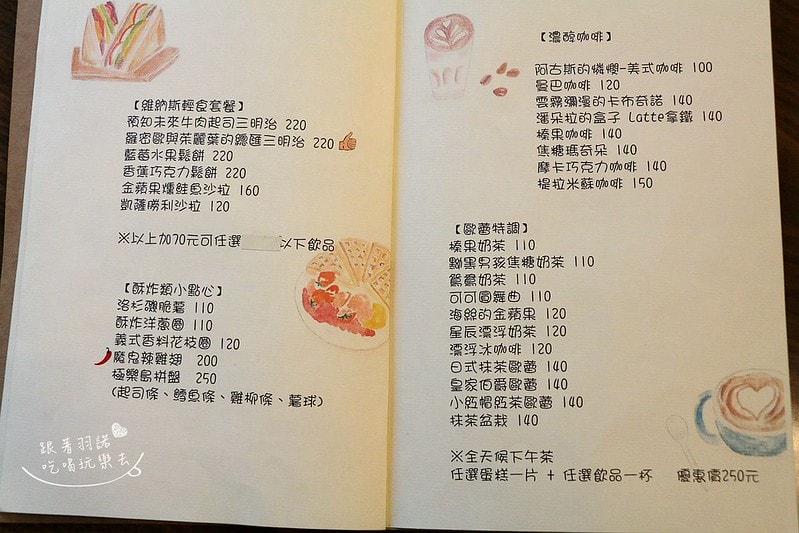 【維納斯輕食套餐】
預知未來牛肉起司三明治 220
羅密歐與茱麗葉的總匯三明治 220
藍莓水果鬆餅 220
香蕉巧克力鬆餅 220
金蘋果燻鮭魚沙拉 160
凱薩勝利沙拉 120
※以上加70元可任選 以下飲品
【酥炸類小點心】
洛杉磯脆薯 110
酥炸洋蔥圈 110
義式香料花枝圈 120
魔鬼辣雞翅 200
極樂島拼盤 250
(起司條、鱈魚條、雞柳條、薯球)
跟著羽諾
吃喝玩樂去
【濃醇咖啡】
阿古斯的憐憫-美式咖啡 100
曼巴咖啡 120
雲霧瀰漫的卡布奇諾 140
潘朵拉的盒子 Latte拿鐵 140
榛果咖啡 140
焦糖瑪奇朵 140
摩卡巧克力咖啡 140
提拉米蘇咖啡 150
【歐蕾特調】
榛果奶茶 110
黝黑男孩焦糖奶茶 110
鴛鴦奶茶 110
可可圓舞曲 110
海絲的金蘋果 120
星辰漂浮奶茶 120
漂浮冰咖啡 120
日式抹茶歐蕾 140
皇家伯爵歐蕾 140
小紅帽紅茶歐蕾 140
抹茶盆栽 140
※全天候下午茶
任選蛋糕一片 + 任選飲品一杯 優惠價250元